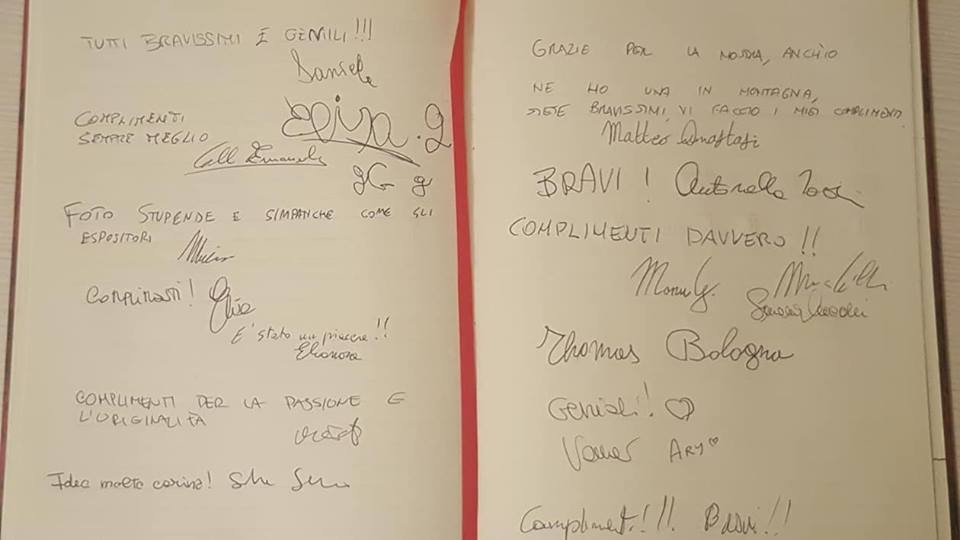 TUTTI BRAVISSIMI E GENILI!!!
Daniele
COMPLIMENTI
SEMPRE MEGLIO
Elisa.g
gG g
FOTO STUPENDE E SIMPATICHE COME GLI
ESPOSITORI
COMPLIMENTI!
E' stato un piacere!!
Eleonora
COMPLIMENTI PER LA PASSIONE E
L'ORIGINALITÀ
Idea molto carina!
GRAZIE PER LA MOSTRA, ANCH'IO
NE HO UNA IN MONTAGNA,
SIETE BRAVISSIMI, VI FACCIO I MIEI COMPLIMENTI.
Matteo Anastasi
BRAVI! Antonella
COMPLIMENTI DAVVERO!!
Thomas Bologna
Geniali!! ♡
ARY♡
Complimenti!!! Bravi!!